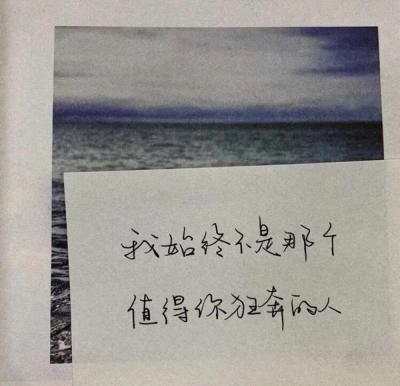 我始终不是那个
值得你狂奔的人